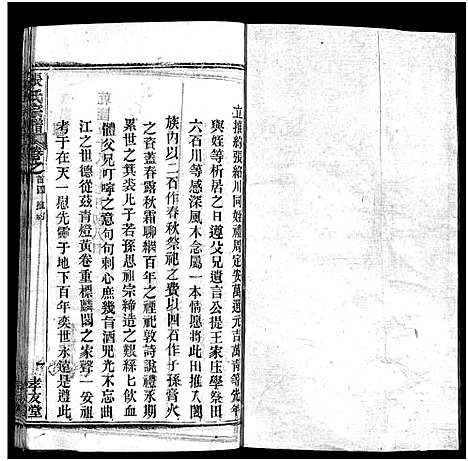 立推約張紹川同姪禮周定安萬選元吉萬南等兇年
與姪等析居之日遵父兄遺言公提王家庄學祭田
六石川等感深風木念屬一本情愿將此田推入閤
族內以二石作春秋祭祀之費以四石作子孫膏火
之資蓋春露秋霜聊綱百年之禋祀敦詩說禮永期
累世之箕裘凡子若孫思祖宗締造之艱絲七飲血
體父兄叮嚀之意句句刺心庶幾旨酒兕光木忘曲
江之世德從茲青燈黃卷重標麟閣之家聲一妥祖
考于在天一慰先靈于地下百年奕世永遠是遵此
張氏宗譜 卷之首
孝友堂